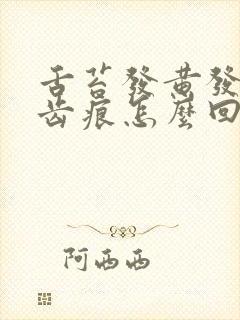 舌苔發黃發
齒痕怎麼回
阿西西